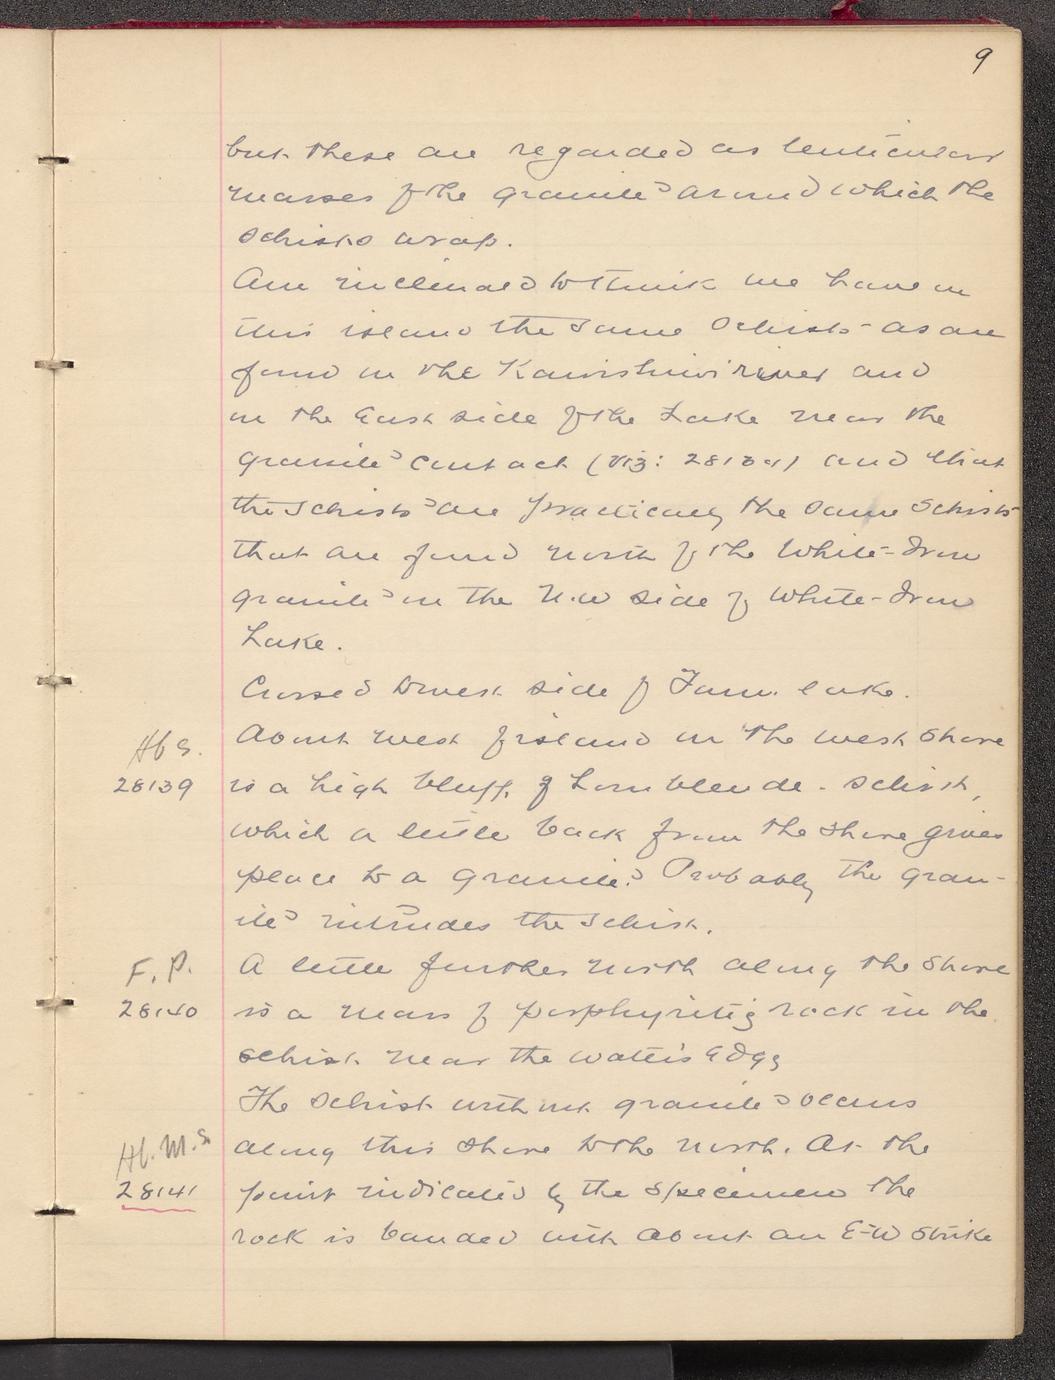 9
but these are regarded as lenticular
masses of the granite around which the
schists wrap.
Am inclined to think we have in
this island the same schists as are
found in the Kawishiwi river and
on the East side of the Lake near the
granite contact (viz: ) and that
the schists are practically the same schists
that are found north of the White-Iron
granite on the N.W side of White-Iron
Lake.
Crossed to west side of Farm lake.
About west of island on the west shore
Hb S.
28139 is a high bluff of hornblende-schist,
which a little back from the shore gives
place to a granite. Probably the gran-
ite intrudes the schist.
F. P. A little further north along the shore
28140 is a mass of porphyritic rock in the
schist near the water's edge
The schist without granite occurs
Hb. M. S along this shore to the north. At the
28141 point indicated by the specimen the
rock is banded with about an E-W strike